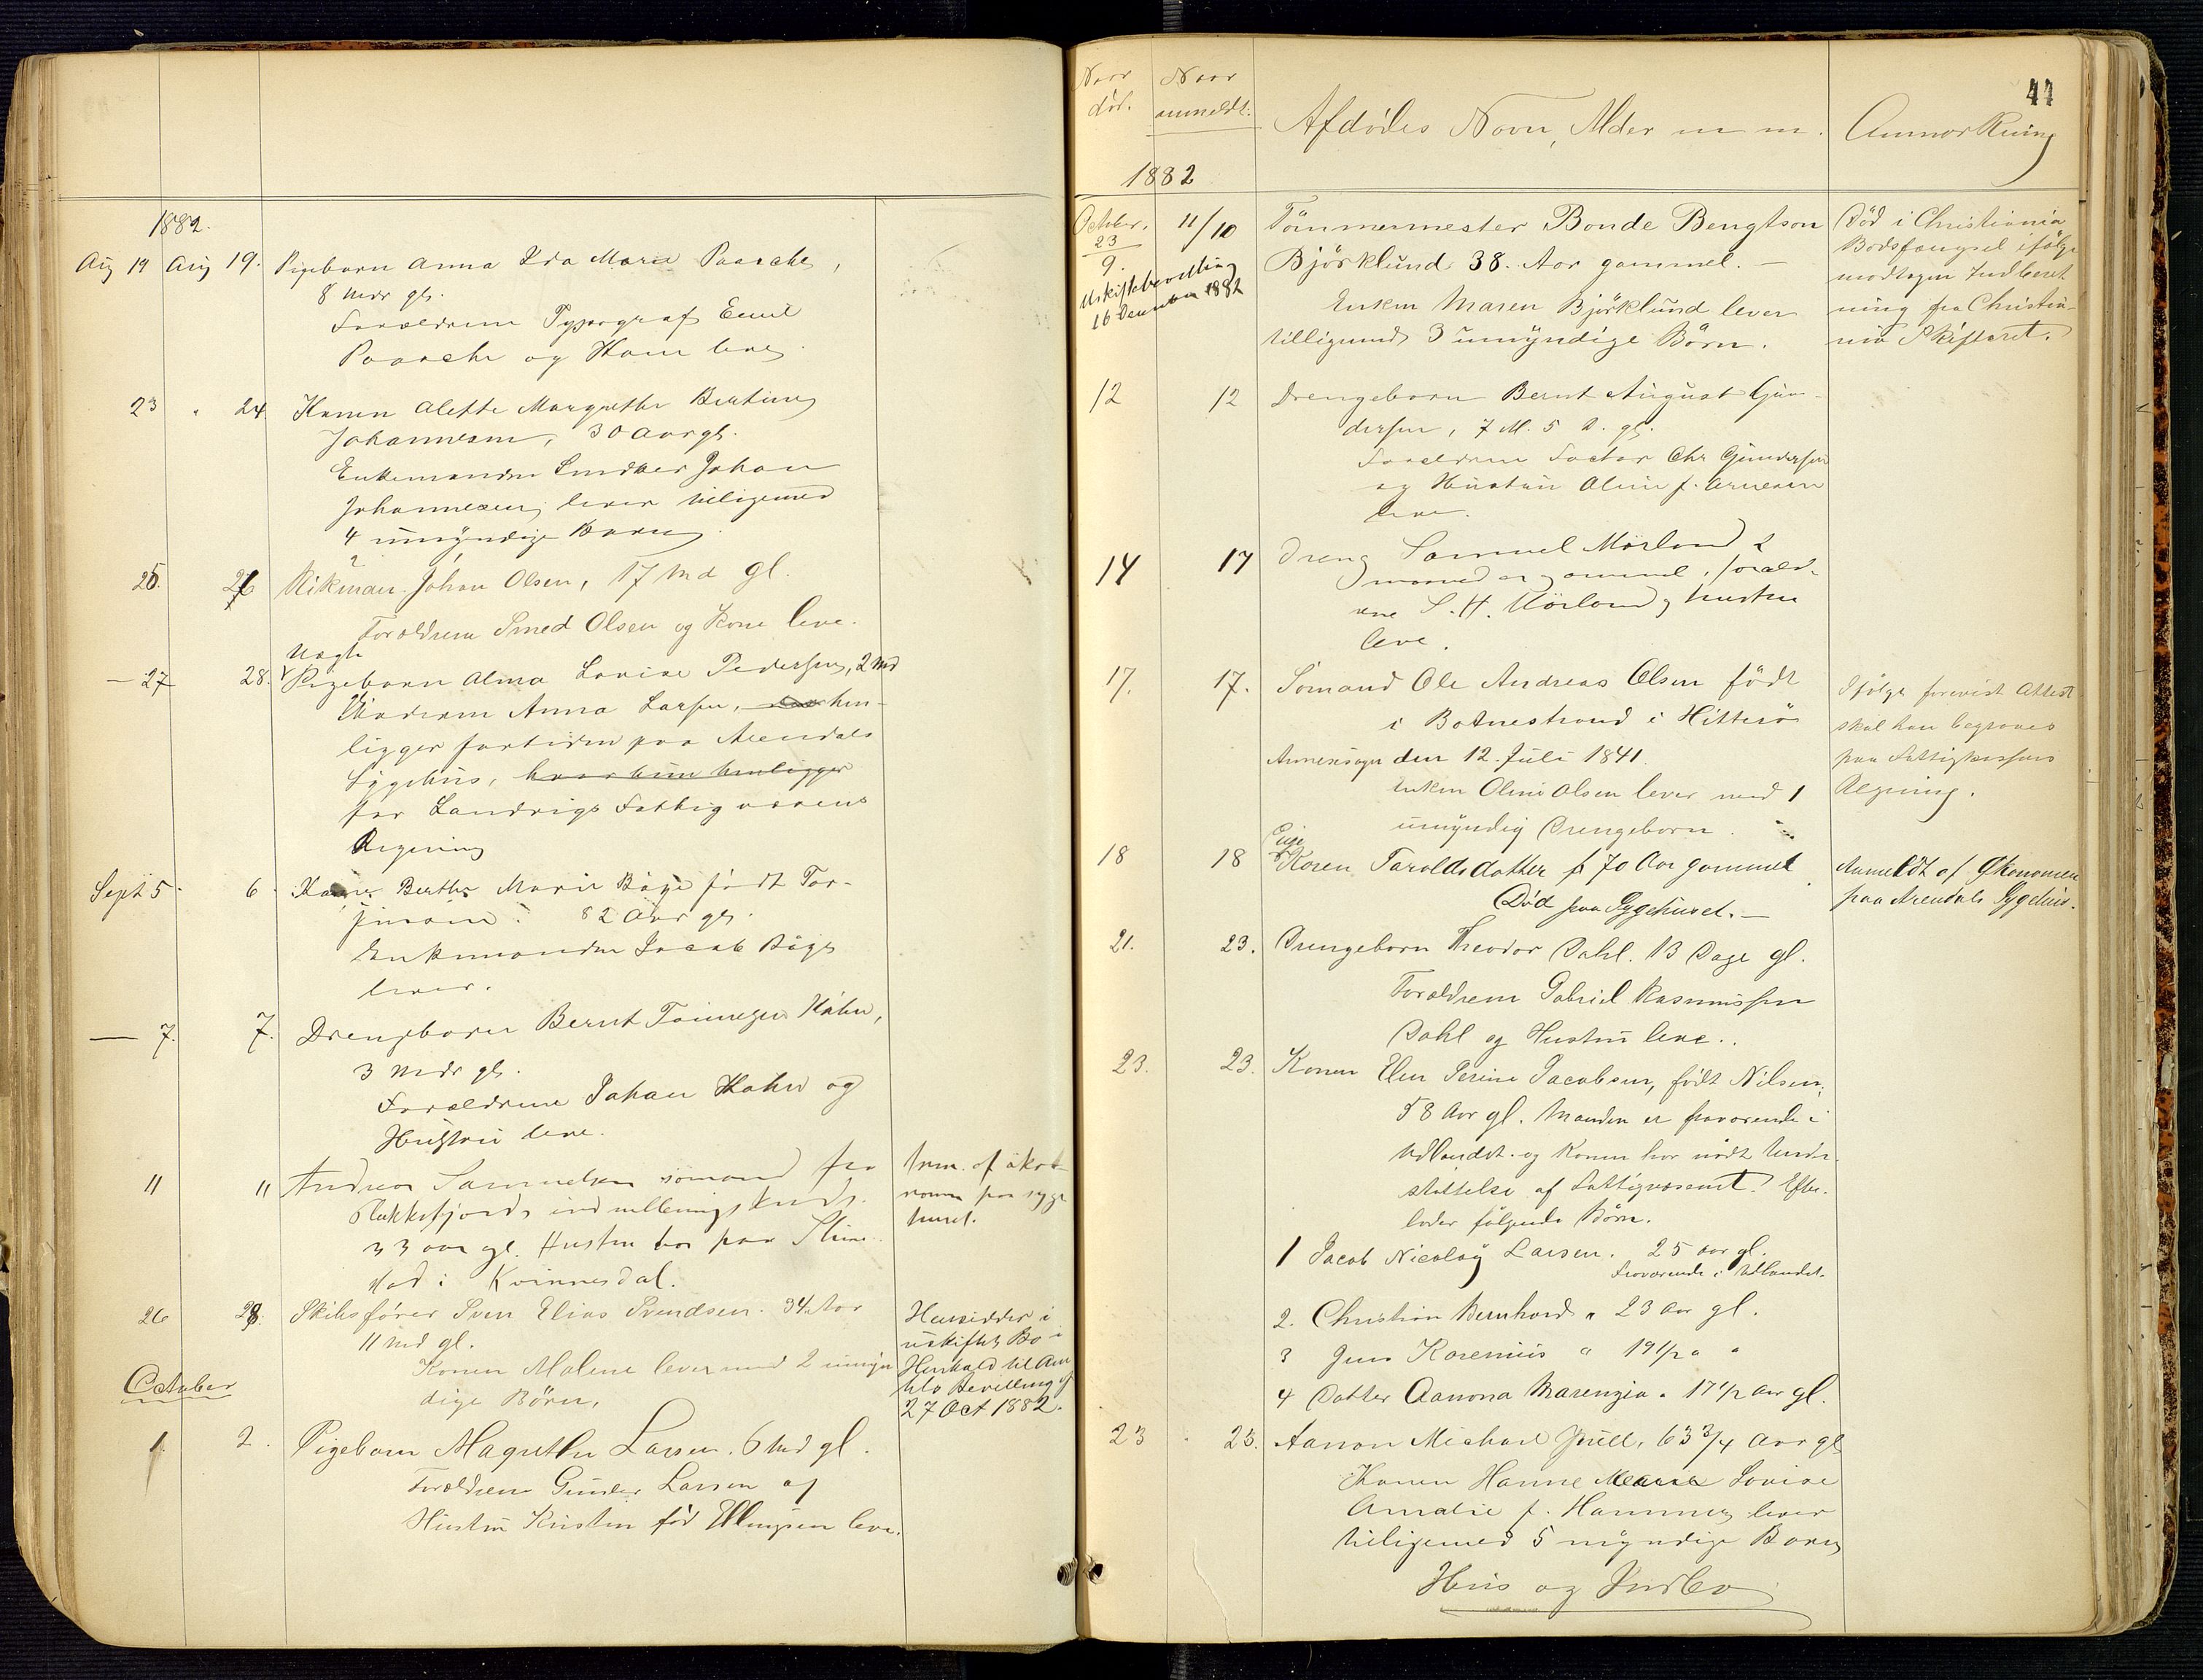 1882.
Aug 19 Aug 19. Pigebarn Anna Ida Marie Paasche,
8 Mdr gl.
Forældrene Typograf Emil
Paasche og Kone lever
23 " 24 Konen Alette Margrethe Bertine
Johannesen, 30 Aar gl.
Enkemanden Johan
Johannesen, lever tilligemed
4 umyndige Børn
25. 26 Rikman Johan Olsen, 17 Md gl.
Forældrene Smed Olsen og Kone leve.
Uægte
— 27 28. Pigebarn Alma Lovise Pedersen, 2 Md
Moderen Anna Larsen, hen-
ligger fortiden paa Arendals
Sygehus, hvor hun henligger
for Landvigs Fattigvæsens
Regning
Sept 5 6 Konen Berthe Marie Bøye født Tor-
82 Aar gl.
Enkemanden Jacob Bøye
lever.
— 7. 7. Drengebarn Bernt Tønnesen Hahn,
3 Mdr gl.
Forældrene Johan Hahn og
Hustru leve.
11 11 Andreas Samuelsen sømand fra
Flekkefjords indrulleringskreds.
33 aar gl. Hustru bor paa
stad i Kvinnesdal.
Anm. af øko-
nomen paa syge
huset.
26 28. Skibsfører Sven Elias Svendsen. 34 Aar
11 Md gl.
Konen Malene lever med 2 umyn
dige Børn.
Hensidder i
uskiftet Bo i
Henhold til Am
tets Bevilling af
27 Oct 1882.
October
1. 2. Pigebarn Magrethe Larsen. 6 Md gl.
Forældrene Gunder Larsen og
Hustru Kirstin fød Ellingsen leve.
44
Naar død. Naar anmeldt: Afdødes Navn, Alder m m. Anmærkning
1882
October. 23 11/10 Tømmermester Bonde Bengtson
9. Bjørklund. 38. Aar gammel. —
Uskiftebevilling
16 December 1882
Enken Maren Bjørklund lever
tilligemed 3 umyndige Børn.
Død i Christiania
Bodsfængsel ifølge
modtagen Indberet
ning fra Christia-
nia Skifteret.
12 12 Drengebarn Bernt August Gun-
dersen, 7 M. 5 D. gl.
Forældrene Factor Chr Gundersen
og Hustru Oline f. Arnesen
leve.
14 17 Dreng Samuel Mörland 2
maaneder gammel, foræld-
rne S. H. Mörland & hustru
leve.
17. 17. Sömand Ole Andreas Olsen född
i Botnestrand i Hitterø
Annexsogn den 12. Juli 1841.
Enken Oline Olsen lever med 1
umyndig Drengebarn.
Ifølge forevist Attest
skal han begraves
paa Fattigkassens
Regning.
Pige
18 18 Karen Taroldsdatter f 70 Aar gammel
Død paa Sygehuset. —
Anmeldt af Økonomen
paa Arendals Sygehus.
21. 23. Drengebarn Theodor Dahl. 13 Dage gl.
Forældrene Gabriel Rasmussen
Dahl og Hustru leve..
23. 23. Konen Elen Serine Jacobsen, født Nilsen.
58 Aar gl. Manden er fraværende i
Udlandet. og Konen har nødt Under-
støttelse af Fattigvæsenet. Efter-
lader følgende Børn.
1 Jacob Nicolay Larsen. 25 aar gl.
fraværende i Udlandet.
2. Christian Bernhard " 23 aar gl.
3 Jens Karenius " 19 1/2 " "
4 Datter Aanona Marenzia " 17 1/2 aar gl.
23 23. Aanon Michael Juell, 63 3/4 Aar gl
Konen Hanne Marie Lovise
Amalie f. Hammer lever
tilligemed 5 myndige Børn
Hus og Indbo